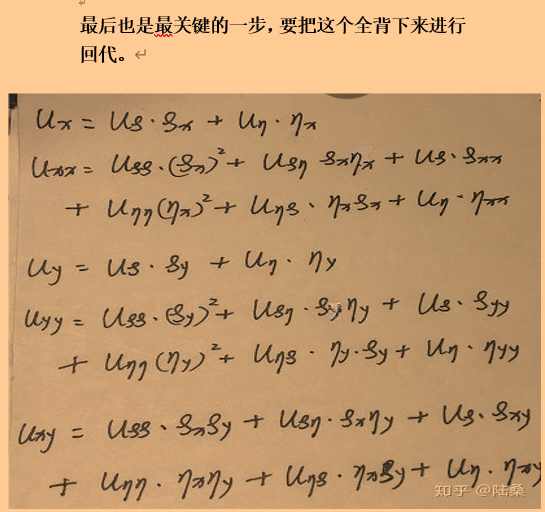 最后也是最关键的一步，要把这个全背下来进行
回代。
Ux = Uξ·ξx + Uη·ηx
Uxx = Uξξ·(ξx)² + Uξη ξxηx + Uξ·ξxx
+ Uηη(ηx)² + Uηξ·ηxξx + Uη·ηxx
Uy = Uξ·ξy + Uη·ηy
Uyy = Uξξ·(ξy)² + Uξη·ξy·ηy + Uξ·ξyy
+ Uηη(ηy)² + Uηξ·ηy·ξy + Uη·ηyy
Uxy = Uξξ·ξxξy + Uξη·ξxηy + Uξ·ξxy
+ Uηη·ηxηy + Uηξ·ηxξy + Uη·ηxy
知乎 @陆桑